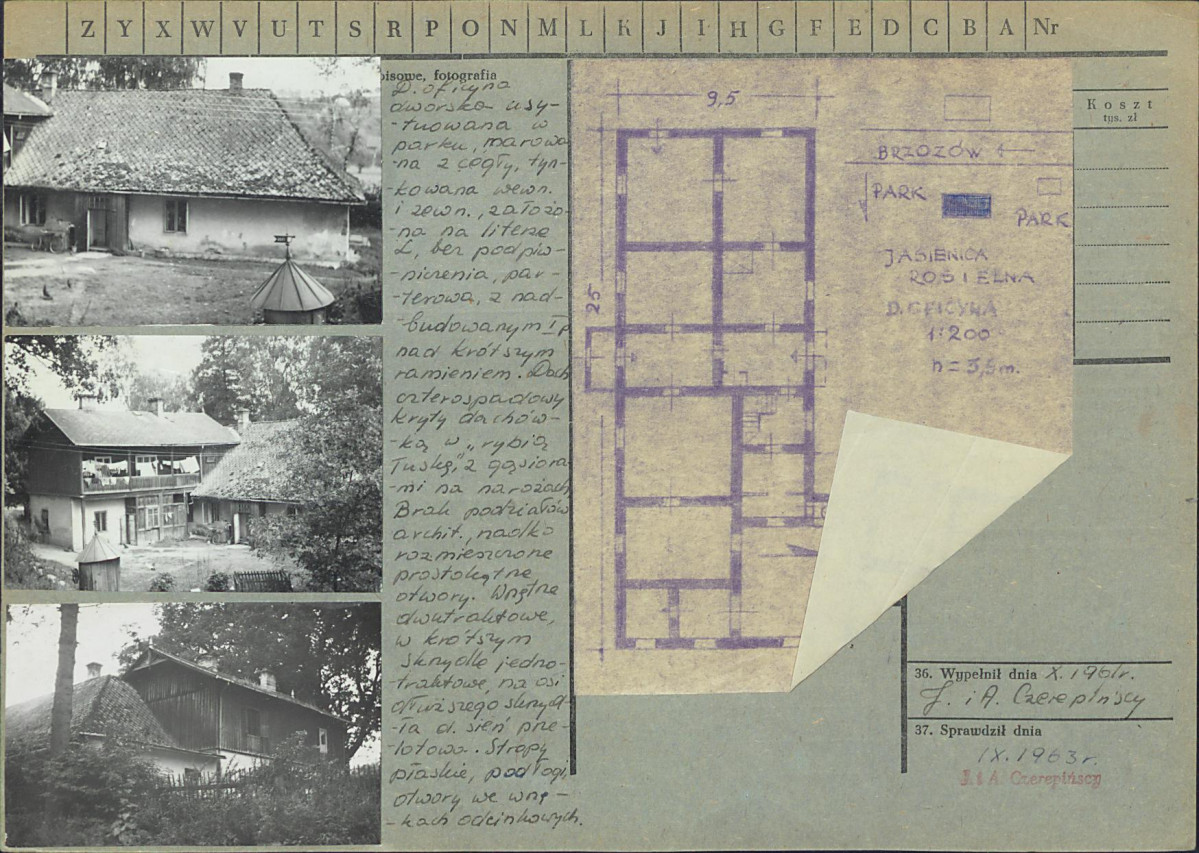 Z Y X W V U T S R P O N M L K J I H G F E D C B A Nr
isowe, fotografia
D. oficyna
dworska usy-
-tuowana w
parku, murowa-
-na z cegły, tyn-
-kowana wewn.
i zewn., założo-
-na na literę
L, bez podpiw-
-niczenia, par-
-terowa, z nad-
-budowanym I p
nad krótszym
ramieniem. Dach
czterospadowy
kryty dachów-
-ką w „rybią
łuskę" z gąsiora-
-mi na narożach
Brak podziałów
archit., rzadko
rozmieszczone
prostokątne
otwory. Wnętrze
dwutraktowe,
w krótszym
skrzydle jedno-
-traktowe, na osi
dłuższego skrzyd-
-ła d. sień prze-
-lotowa. Stropy
płaskie, podłogi,
otwory we wnę-
-kach odcinkowych.
9,5
25
BRZOZÓW
PARK
PARK
JASIENICA
ROSIELNA
D. OFICYNA
1:200
h = 3,5 m.
Koszt
tys. zł
36. Wypełnił dnia X. 1961r.
J. i A. Czerepińscy
37. Sprawdził dnia
IX. 1963 r.
J. i A. Czerepińscy